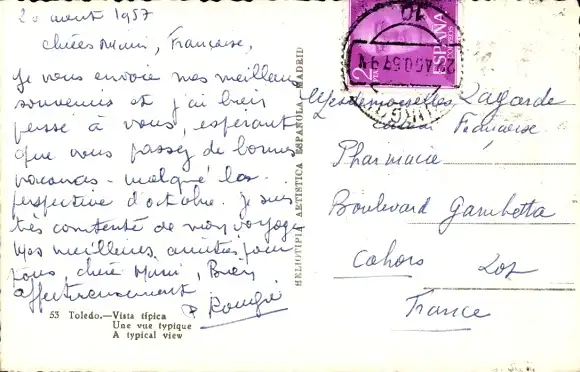 20 août 1957
chères Mimi, Françoise,
Je vous envoie mes meilleurs
souvenirs et j'ai bien
pensé à vous, espérant
que vous passez de bonnes
vacances - malgré la
perspective d'octobre. je suis
très contente de mon voyage
Mes meilleures amitiés pour
tous, chère Mimi, Bien
affectueusement
53 Toledo.—Vista típica
Une vue typique
A typical view
HELIOTIPIA ARTISTICA ESPAÑOLA - MADRID
2
PTA
ESPAÑA
CORREOS
Mesdemoiselles Lagarde
Françoise
Pharmacie
Boulevard Gambetta
Cahors Lot
France